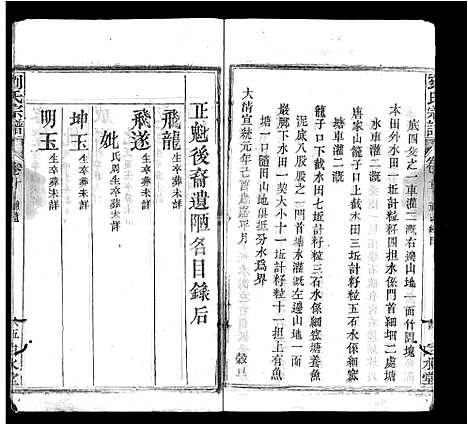 劉氏宗譜
底四叐之一車灌二溉右邊山地一面什園塊
本田外水田一坵計籽粒四担水係門首細冲二處塘
水車灌二溉
唐家山龍子口上截水田三坵計籽粒五石水係門首
塘車灌二溉
龍子口下截水田七坵計籽粒三石水係細窑塘養魚
泥底八股股之一門首塘水灌溉左邊山地一面
巖脚下水田一契大小十一坵計籽粒十一担上有魚
塘一口隨田山地俱抵分水為界
大清宣統元年己酉歲嘉平月 穀旦
正魁後裔遺陋名目錄后
飛龍 生卒葬未詳
飛遂 生卒葬未詳
妣 氏周生卒葬未詳
坤玉 生卒葬未詳
明玉 生卒葬未詳
劉氏宗譜